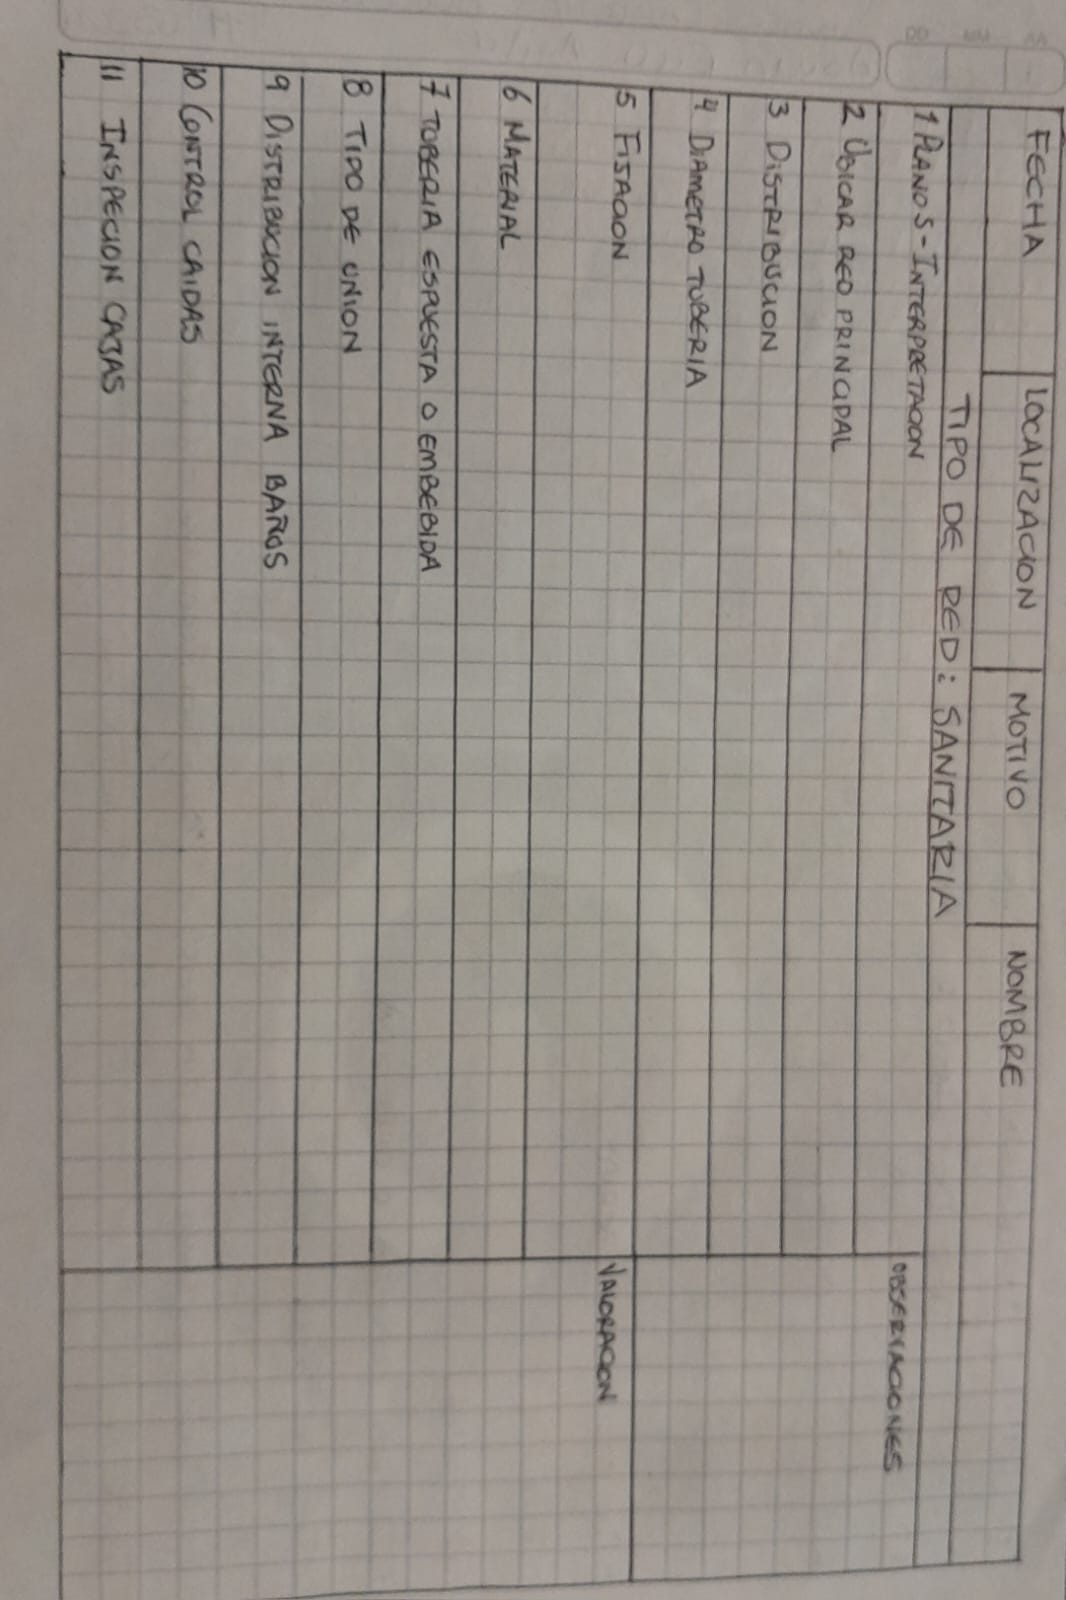 FECHA LOCALIZACION MOTIVO NOMBRE
TIPO DE RED: SANITARIA
1 PLANOS-INTERPRETACION
OBSERVACIONES
2 UBICAR RED PRINCIPAL
3 DISTRIBUCION
4 DIAMETRO TUBERIA
5 FIJACION
VALORACION
6 MATERIAL
7 TUBERIA ESPUESTA O EMBEBIDA
8 TIPO DE UNION
9 DISTRIBUCION INTERNA BAÑOS
10 CONTROL CAIDAS
11 INSPECION CAJAS